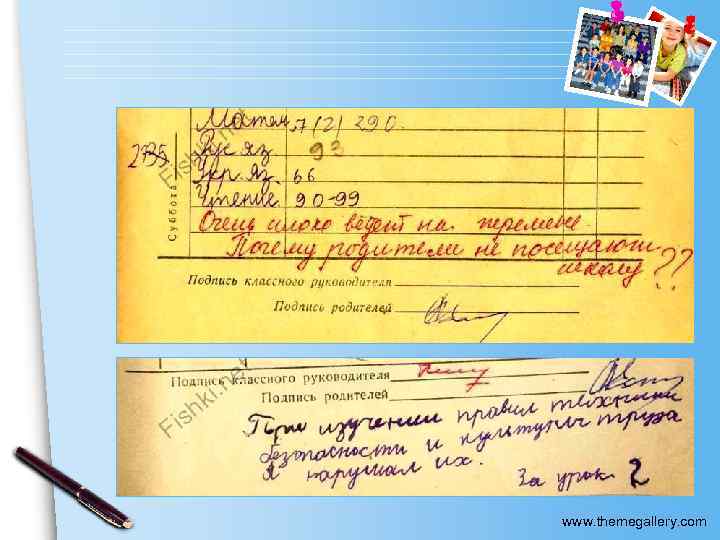 Матем. 57 (2) 290.
2735 Рус яз 93
Суббота
Укр. яз. 66
Чтение 90-99
Очень плохо ведет на перемене.
Почему родители не посещают
школу??
Подпись классного руководителя
Подпись родителей
Fishki.net
Подпись классного руководителя
Подпись родителей
Fishki.net
При изучении правил техники
безопасности и культуры труда
я нарушал их.
За урок 2
www.themegallery.com